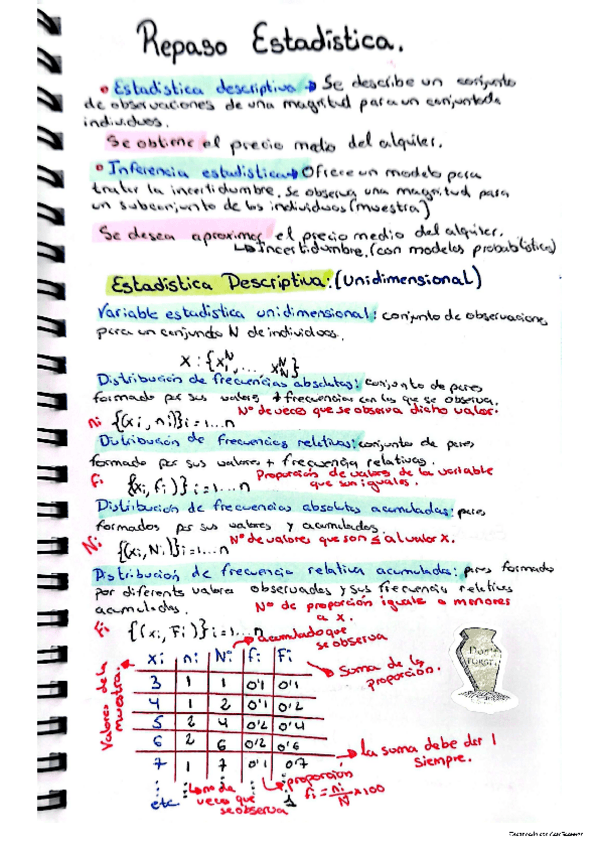 Repaso Estadística.
• Estadística descriptiva → Se describe un conjunto
de observaciones de una magnitud para un conjunto de
individuos.
Se obtiene el precio medio del alquiler.
• Inferencia estadística → Ofrece un modelo para
tratar la incertidumbre. Se observa una magnitud para
un subconjunto de los individuos (muestra)
Se desea aproximar el precio medio del alquiler.
↳ Incertidumbre. (con modelos probabilísticos)
Estadística Descriptiva: (Unidimensional)
Variable estadística unidimensional: conjunto de observaciones
para un conjundo N de individuos.
X : {x₁ᴺ, ... x_Nᴺ}
Distribución de frecuencias absolutas: conjunto de pares
formado por sus valores + frecuencias con los que se observa.
Nº de veces que se observa dicho valor.
ni {(xi, ni)} i = 1...n
Distribución de frecuencias relativas: conjunto de pares
formado por sus valores + frecuencia relativas.
Proporción de valores de la variable
que son iguales.
fi {xi, fi)} i = 1...n
Distribución de frecuencias absolutas acumuladas: pares
formados por sus valores y acumulados.
Nº de valores que son ≤ al valor x.
Ni {(xi, Ni)} i = 1...n
Distribución de frecuencia relativa acumulada: pares formado
por diferents valores observados y sus frecuencia relativas
acumuladas.
Nº de proporción iguale o menores
a x.
Fi {(xi, Fi)} i = 1...n
→ acumulado que
se observa
Valores de la
muestra
xi ni Ni fi Fi
3 1 1 0'1 0'1
4 1 2 0'1 0'2
5 2 4 0'2 0'4
6 2 6 0'2 0'6
7 1 7 0'1 0'7
etc
1
→ Suma de la
proporción.
→ la suma debe der 1
siempre.
↳ no de
veces que
se observa
↳ proporción
fi = ni/N x100
Don't
FORGET